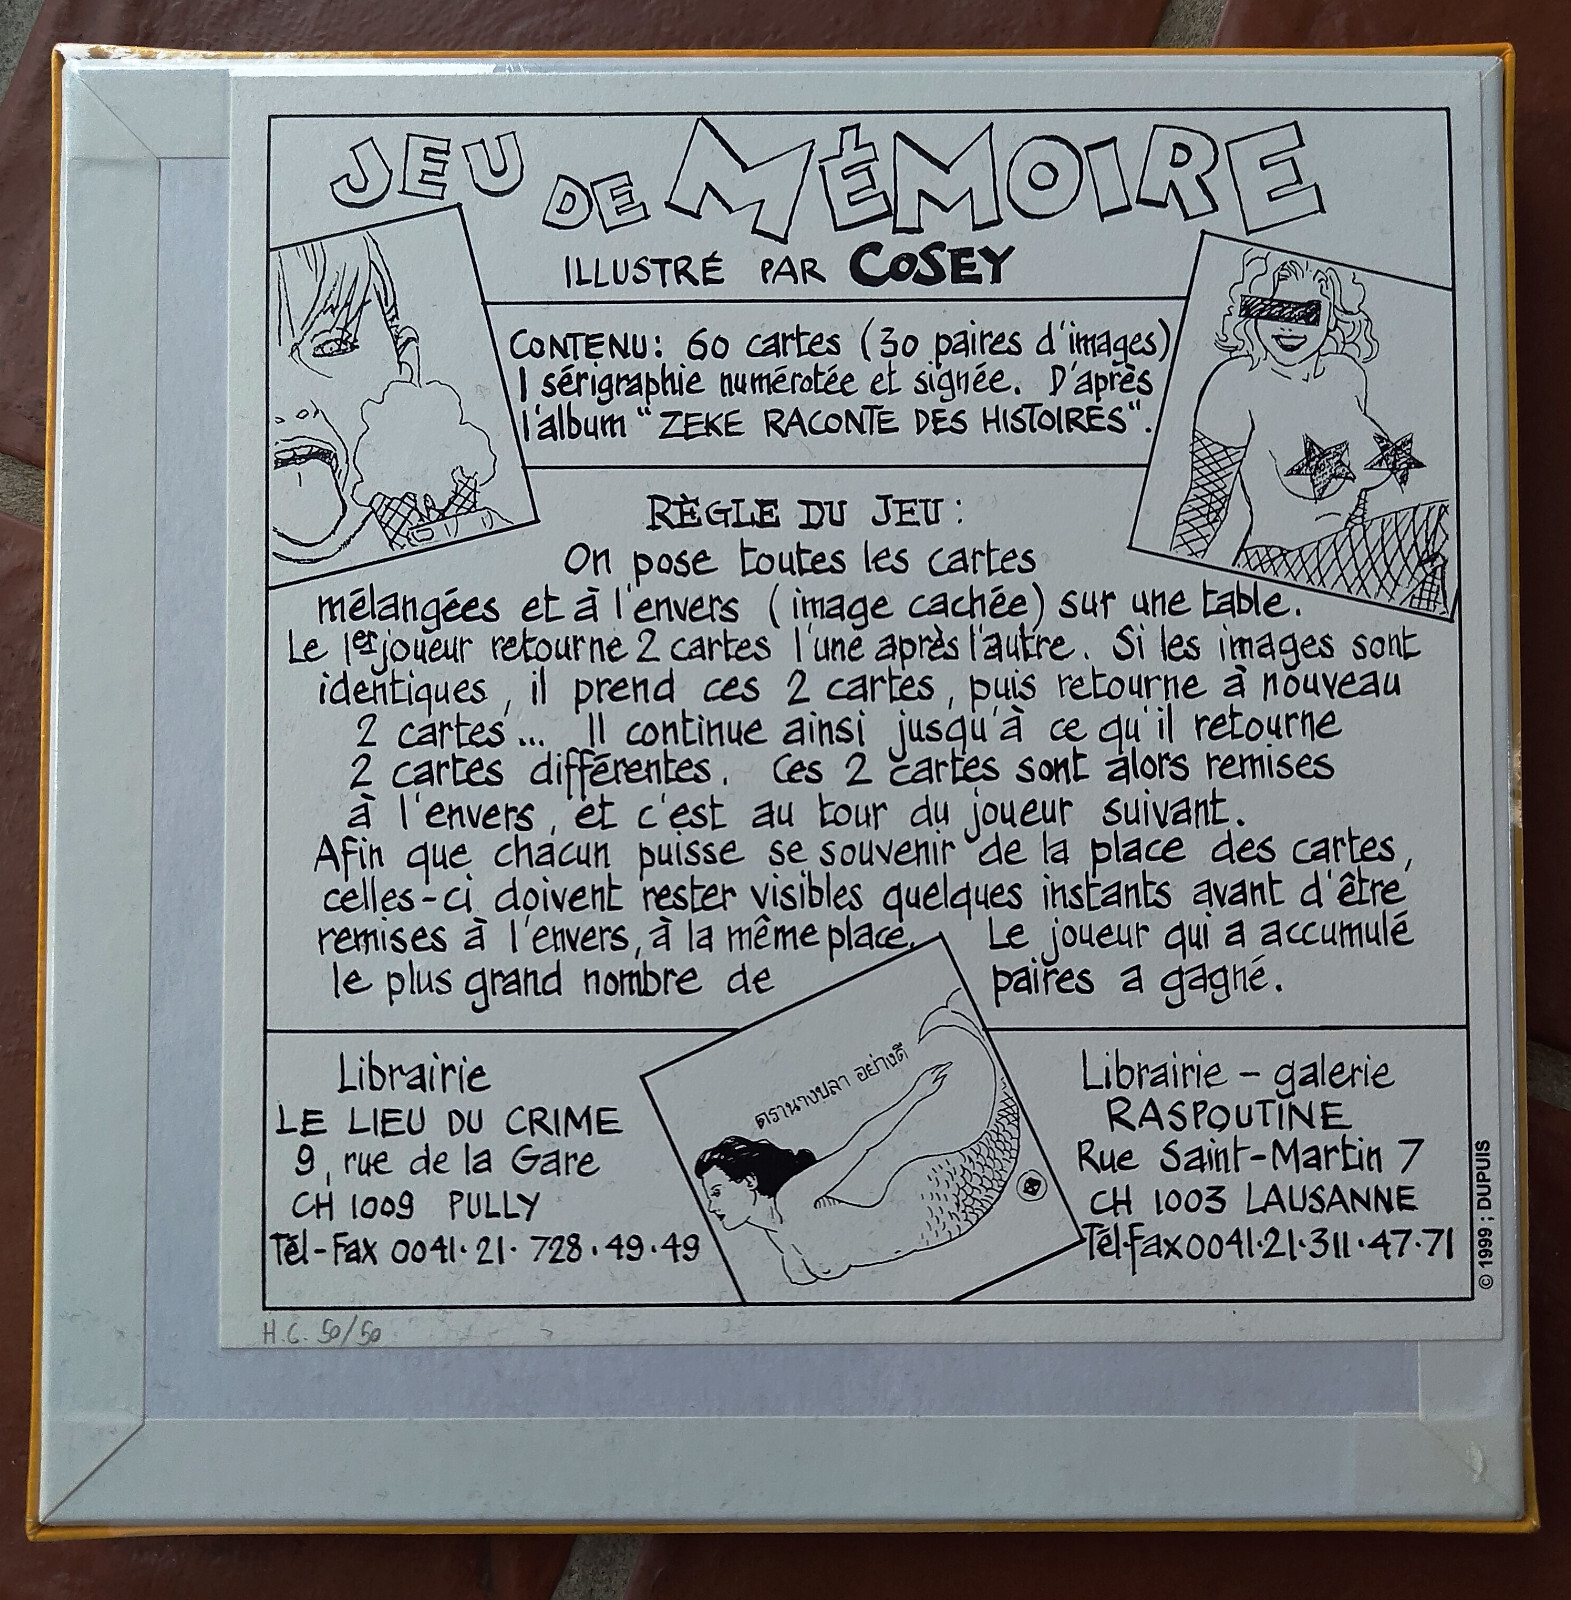 JEU DE MÉMOIRE
ILLUSTRÉ PAR COSEY
CONTENU: 60 cartes (30 paires d'images)
1 sérigraphie numérotée et signée. D'après
l'album "ZEKE RACONTE DES HISTOIRES".
RÈGLE DU JEU:
On pose toutes les cartes
mélangées et à l'envers (image cachée) sur une table.
Le 1er joueur retourne 2 cartes l'une après l'autre. Si les images sont
identiques, il prend ces 2 cartes, puis retourne à nouveau
2 cartes... Il continue ainsi jusqu'à ce qu'il retourne
2 cartes différentes. Ces 2 cartes sont alors remises
à l'envers, et c'est au tour du joueur suivant.
Afin que chacun puisse se souvenir de la place des cartes,
celles-ci doivent rester visibles quelques instants avant d'être
remises à l'envers, à la même place. Le joueur qui a accumulé
le plus grand nombre de paires a gagné.
ตรานางปลา อย่างดี
Librairie
LE LIEU DU CRIME
9, rue de la Gare
CH 1009 PULLY
Tél-Fax 0041.21.728.49.49
Librairie - galerie
RASPOUTINE
Rue Saint-Martin 7
CH 1003 LAUSANNE
Tél-Fax 0041.21.311.47.71
© 1999 ; DUPUIS
H.C. 50/50